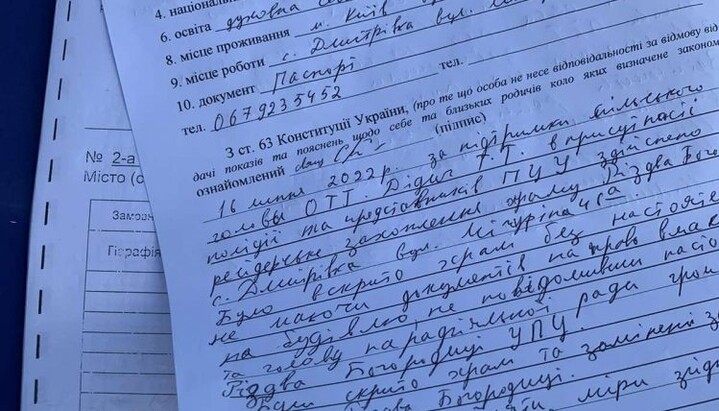 4. національн
6. освіта духовна се
8. місце проживання м. Київ
9. місце роботи с. Дмитрівка вул. М
10. документ Паспорт
тел.
тел. 0679235452
З ст. 63 Конституції України, (про те що особа не несе відповідальності за відмову від
дачі показів та пояснень щодо себе та близьких родичів коло яких визначене законом
ознайомлений
(підпис)
16 липня 2022 р. за підтримки сільського
голови ОТГ. Дідич Т.Т. в присутності
поліції та представників ПЦУ здійснено
рейдерське захоплення храму Різдва Богоро
с. Дмитрівка вул. Мічуріна
Було вскрито храм без настояте
не маючи документів на право влас
на будівлю, не повідомивши насто
та голову парафіяльної ради гром
Різдва Богородиці УПЦ.
Були скрито храм та замінені за
Богородиці.
міри
№ 2-а
Місто (с
Замовн
Гіографія